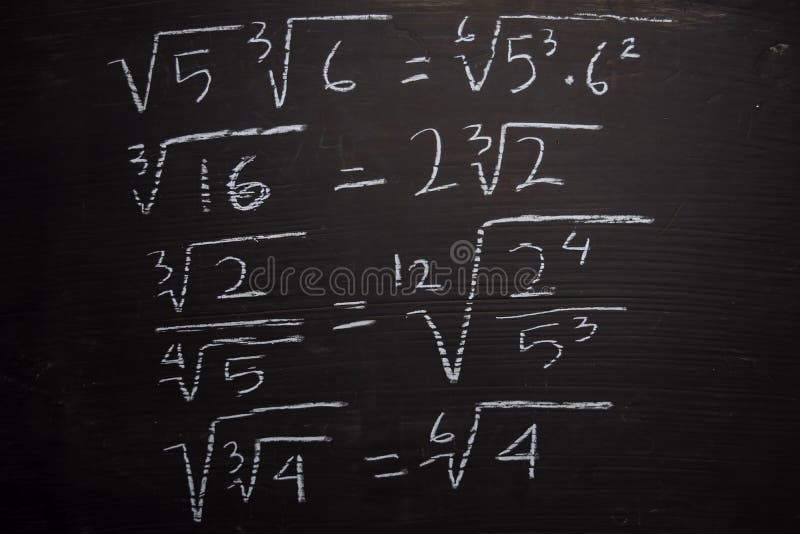 √5 ∛6 = ⁶√(5³·6²)
∛16 = 2∛2
∛2 / ∜5 = ¹²√(2⁴/5³)
√(∛4) = ⁶√4
dreamstime